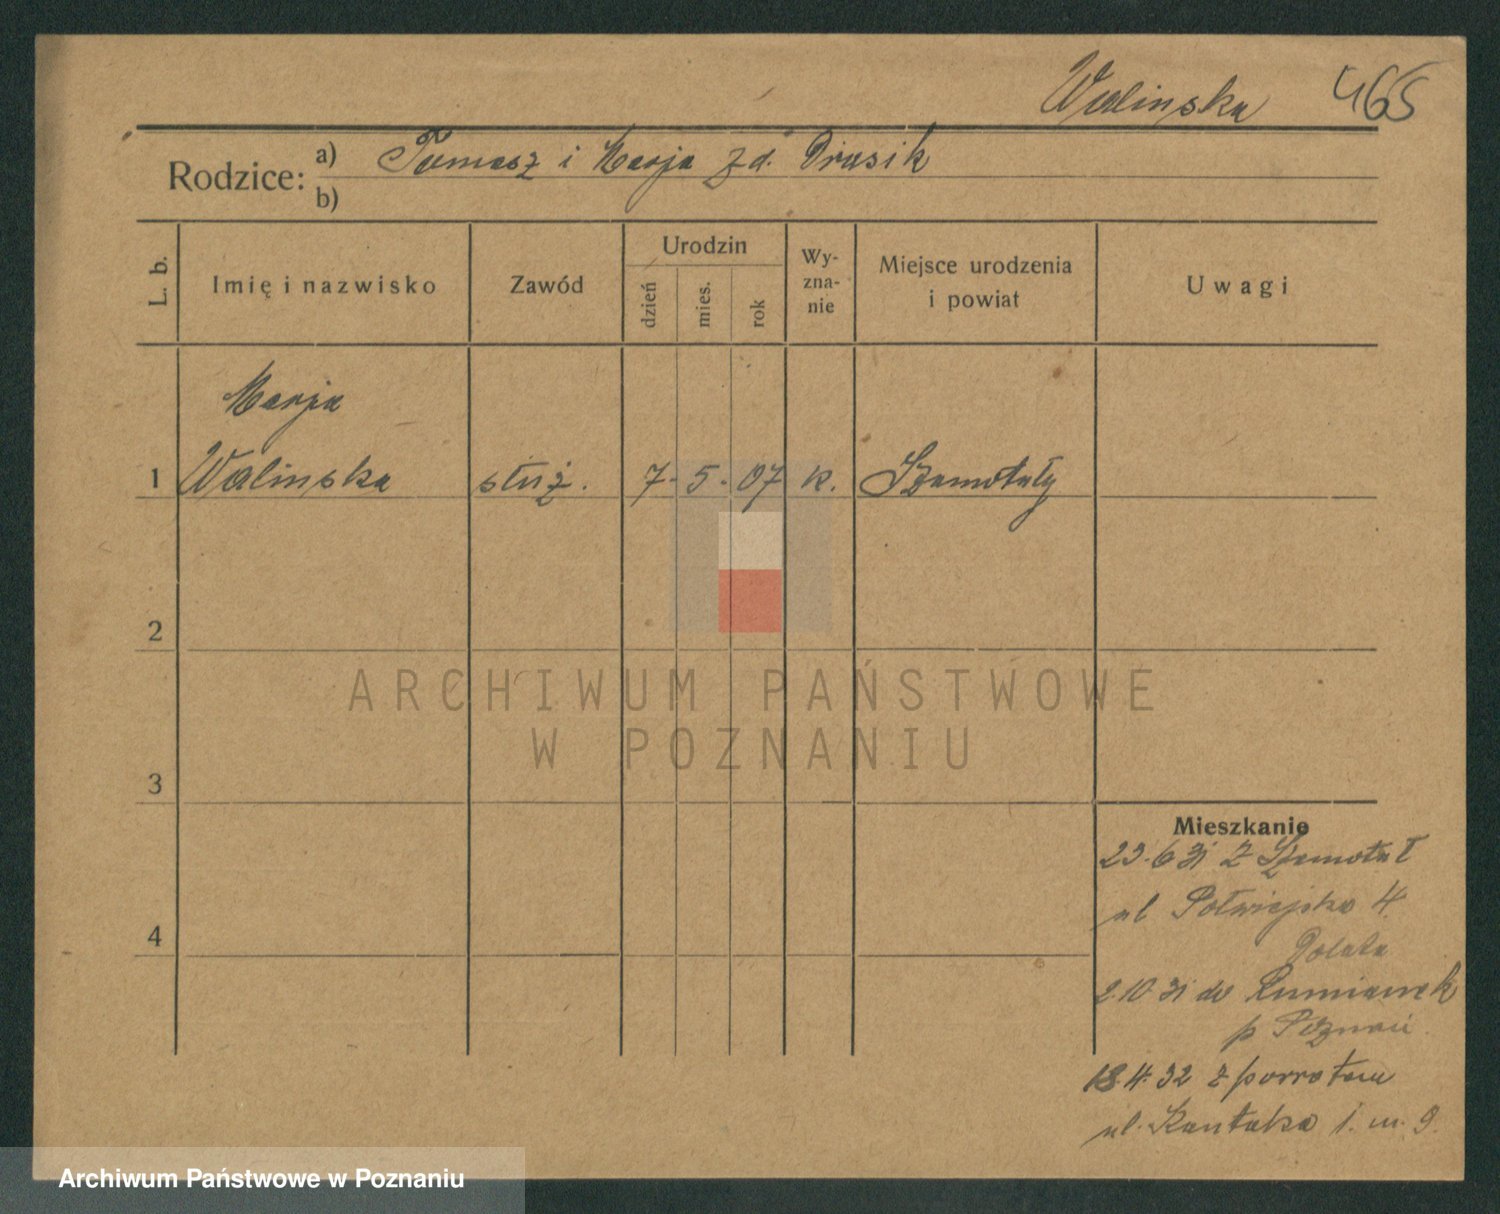 Walinska 465
Rodzice: a) Tomasz i Marja z d. Drusik
b)
L. b.
Imię i nazwisko
Zawód
Urodzin
dzień
mies.
rok
Wy-
zna-
nie
Miejsce urodzenia
i powiat
Uwagi
Marja
1 Walinska służ. 7. 5. 07 k. Szamotuły
2
3
4
Mieszkanie
23.6 31 z Szamotuł
ul Półwiejska 4
2.10 31 do Rumianek
p Poznań
18.4.32 z powrotem
ul. Kantaka 1. m. 9.
ARCHIWUM PAŃSTWOWE
W POZNANIU
Archiwum Państwowe w Poznaniu